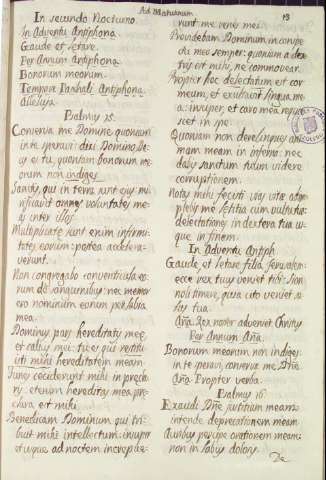 Ad Matutinum
13
In secundo Nocturno.
In Adventu Antiphona.
Gaude et letare.
Per Annum Antiphona
Bonorum meorum.
Tempore Paschali Antiphona.
Alleluya.
Psalmus 15.
Conserva me Domine quoniam
inte speravi: dixi Domino De
us es tu, quoniam bonorum me
orum non indiges.
Sanctis, qui in terra sunt ejus: mi
rificavit omnes voluntates me
as inter illos.
Multiplicate sunt enim infirmi
tates eorum: postea accelera-
verunt.
Non congregabo conventicula eo
rum de sanguinibus: nec memor
ero nominum eorum per labia
mea.
Dominus pars hereditatis meę
et calicis mei: tu es qui restitu
isti mihi hereditatem meam.
Funes ceciderunt mihi in precla
ris: etenim hereditas mea pre
clara est mihi.
Benedicam Dominum qui tri-
buit mihi intellectum: insuper
et usque ad noctem increpue-
runt me renes mei.
Providebam Dominum in conspe
ctu meo semper: quoniam a dex
tris est mihi, ne commovear.
Propter hoc delectatum est cor
meum, et exultavit lingua me
a: insuper, et caro mea requie
scet in spe.
Quoniam non derelinques ani
mam meam in inferno: nec
dabis sanctum tuum videre
corruptionem.
Notas mihi fecisti vias vitæ adim
plebis me letitia cum vultu tuo:
delectationes in dextera tua us-
que in finem.
In Adventu Antiph.
Gaude et letare filia Jerusalem:
ecce rex tuus veniet tibi: Sion
noli timere, quia cito veniet sa
lus tua.
Aña. Rex noster adveniet Christus
Per Annum Aña.
Bonorum meorum non indiges:
in te speravi, conserva me Dñe
Aña. Propter verba.
Psalmus 16.
Exaudi Dñe justitiam meam:
intende deprecationem meam
Auribus percipe orationem meam:
non in labiis dolosis.
De